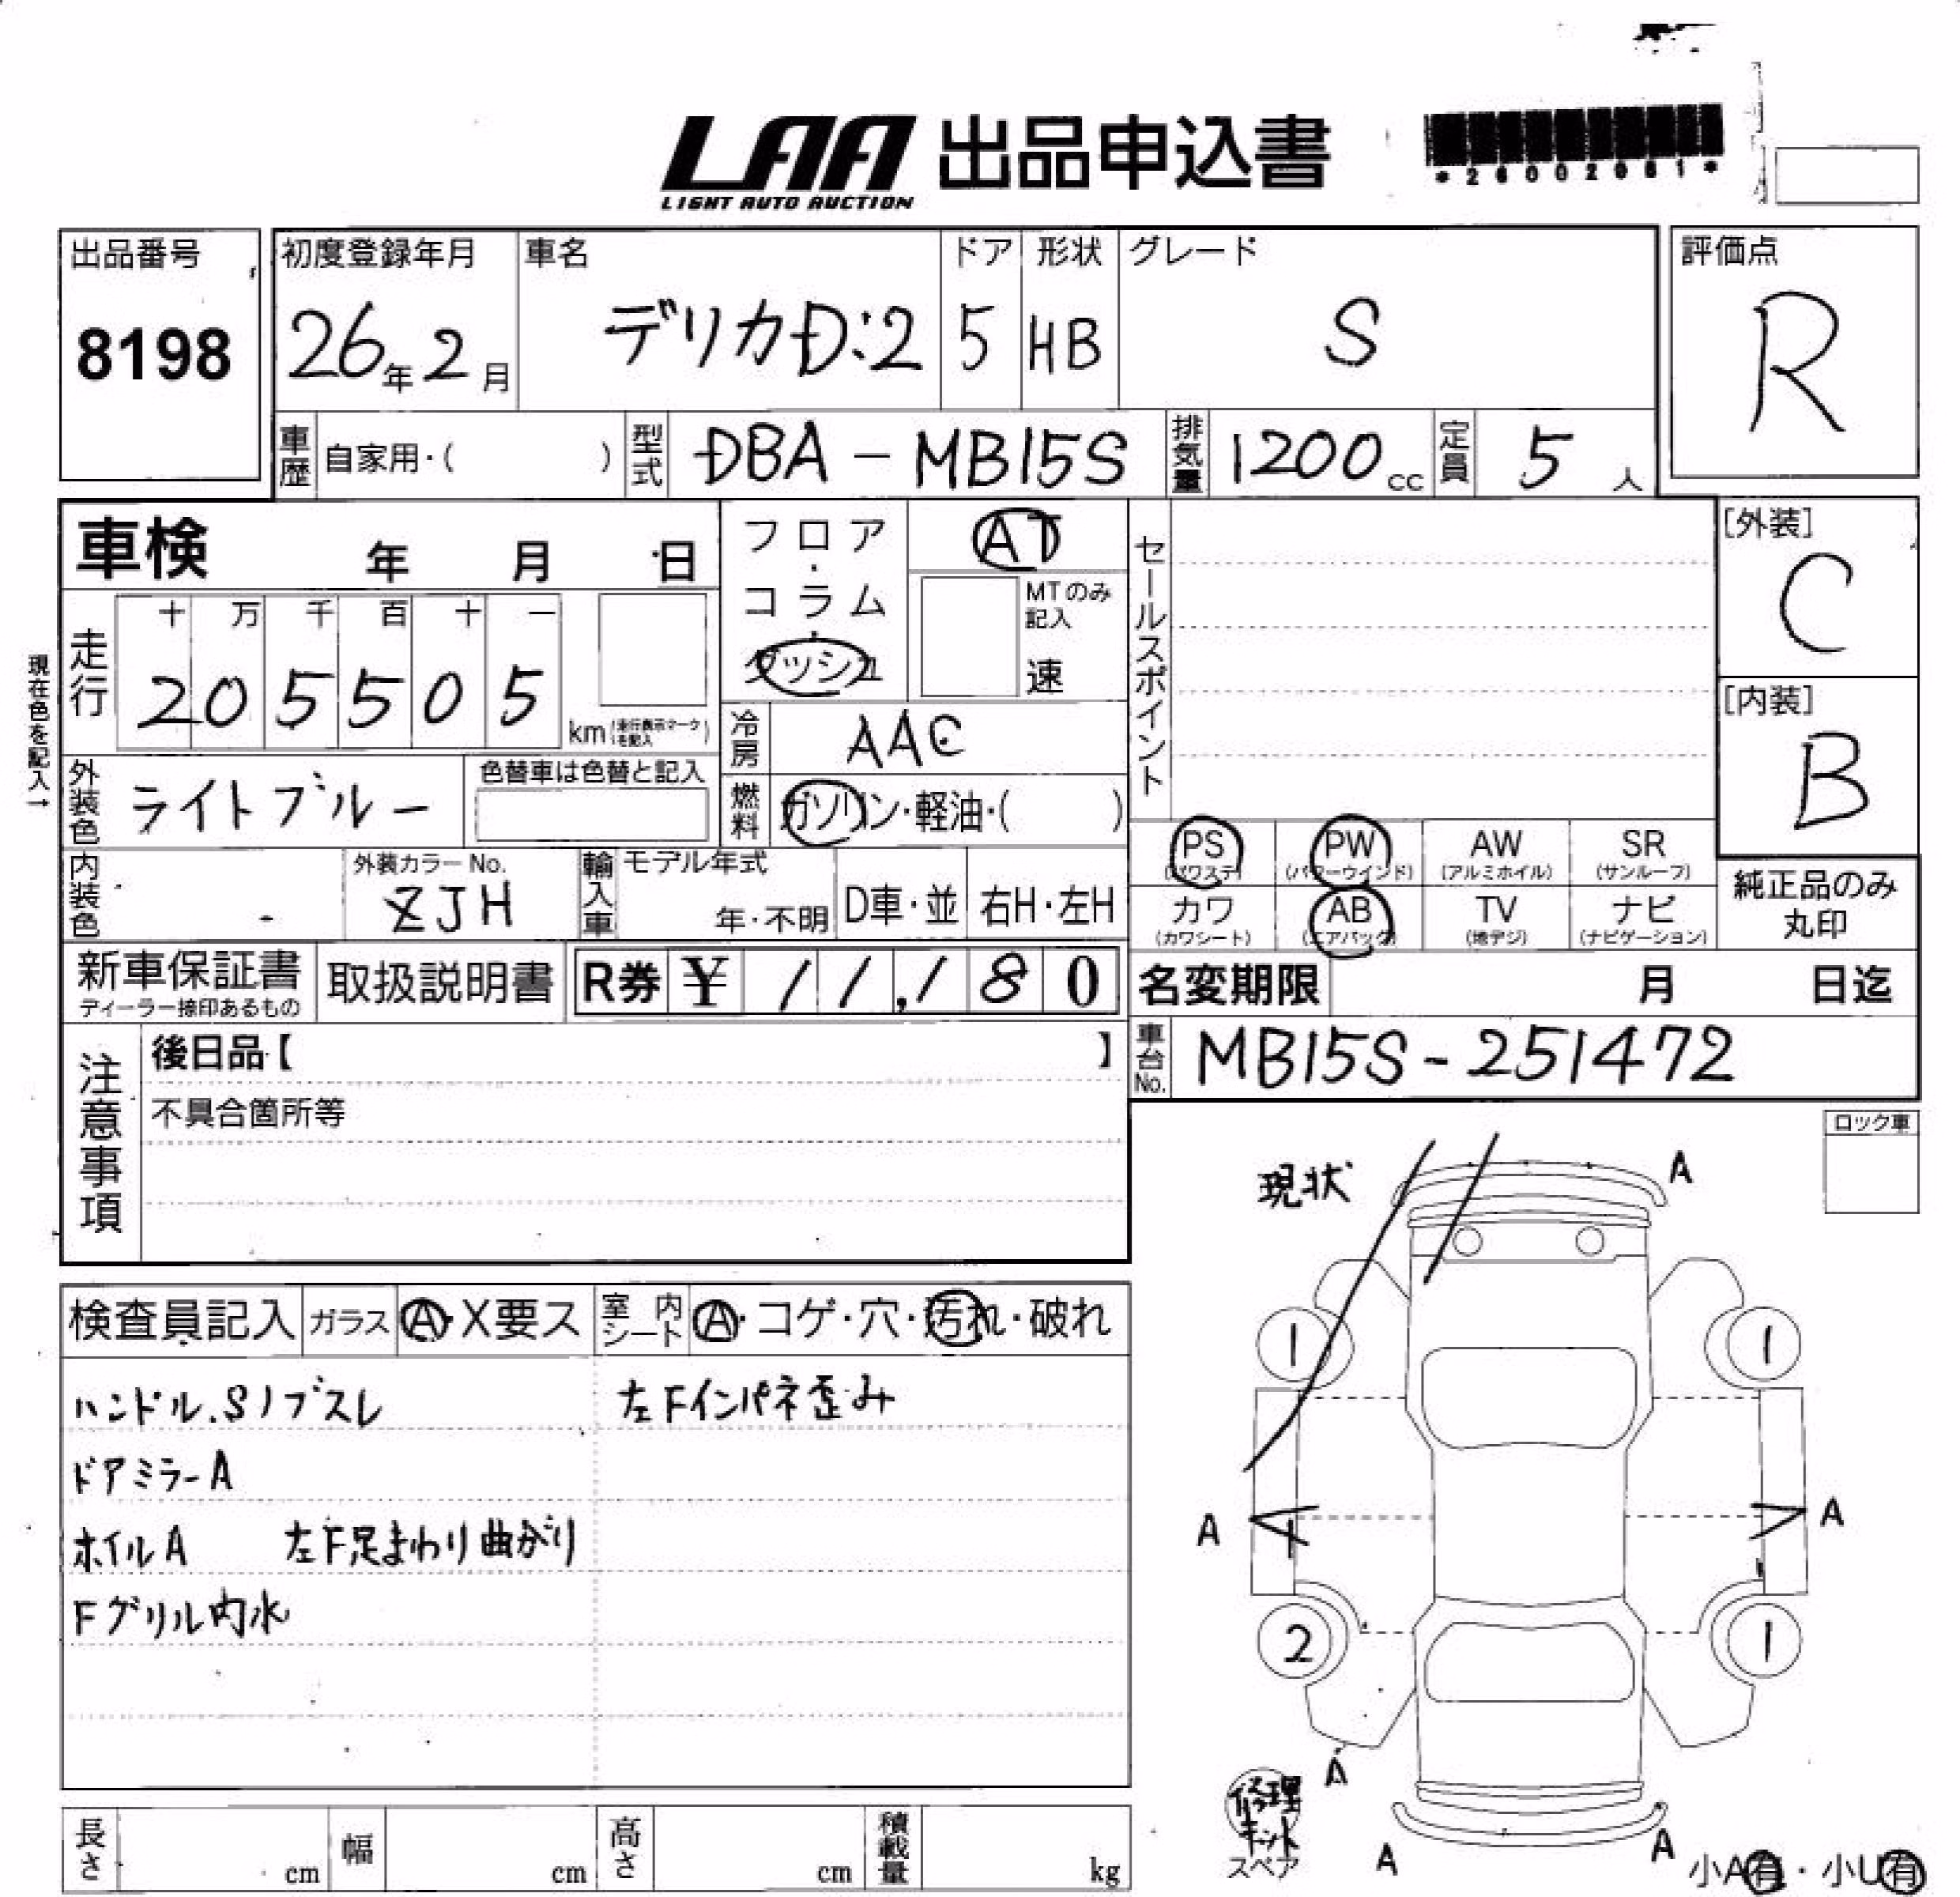 LAA 出品申込書
LIGHT AUTO AUCTION
*26002061*
出品番号
8198
初度登録年月
26年2月
車名
デリカD:2
ドア
5
形状
HB
グレード
S
評価点
R
車歴 自家用・( )
型式 DBA-MB15S
排気量 1200cc
定員 5人
車検 年 月 日
フロア・コラム・ダッシュ
AT
MTのみ記入
速
セールスポイント
[外装]
C
[内装]
B
現在色を記入→
走行
十 万 千 百 十 一
2 0 5 5 0 5
km(走行表示マークを記入)
冷房 AAC
燃料 ガソリン・軽油・( )
外装色 ライトブルー
色替車は色替と記入
内装色
外装カラーNo.
ZJH
輸入車 モデル年式
年・不明
D車・並
右H・左H
PS (パワステ)
PW (パワーウインド)
AW (アルミホイル)
SR (サンルーフ)
カワ (カワシート)
AB (エアバッグ)
TV (地デジ)
ナビ (ナビゲーション)
純正品のみ
丸印
新車保証書
ディーラー捺印あるもの
取扱説明書
R券 ¥ 11,180
名変期限 月 日迄
車台No. MB15S-251472
注意事項
後日品【 】
不具合箇所等
ロック車
現状
A
検査員記入
ガラス A・X要ス
室内シート A・コゲ・穴・汚れ・破れ
ハンドル.Sノブスレ
左Fインパネ歪み
ドアミラーA
ホイルA 左F足まわり曲がり
Fグリル内水
1
1
A
A
2
1
A
修理
キット
スペア
A
A
小A有・小U有
長さ cm
幅 cm
高さ cm
積載量 kg